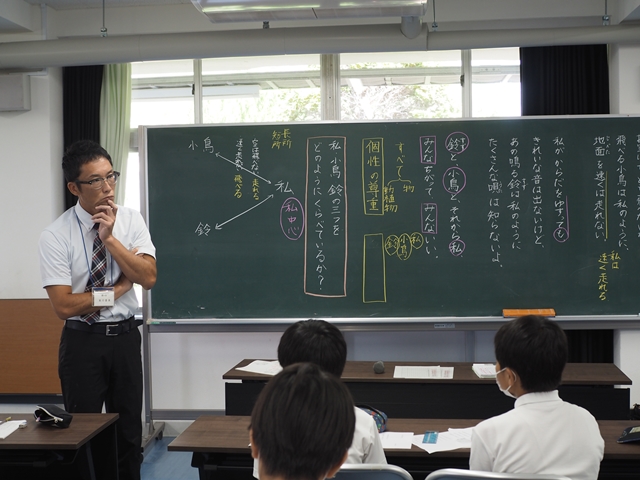 飛べる小鳥は私のように、
地面を速くは走れない。
私は
速く走れる
私がからだをゆすっても
きれいな音は出ないけど、
あの鳴る鈴は私のように
たくさんな唄は知らないよ。
鈴と、小鳥と、それから私、
みんなちがって、みんないい。
すべて
物
動植物
個性の尊重
鈴 小鳥 私
私 小鳥 鈴の三つを
どのようにくらべているか?
長所
短所
小鳥
私
私中心
鈴
走れる
飛べる